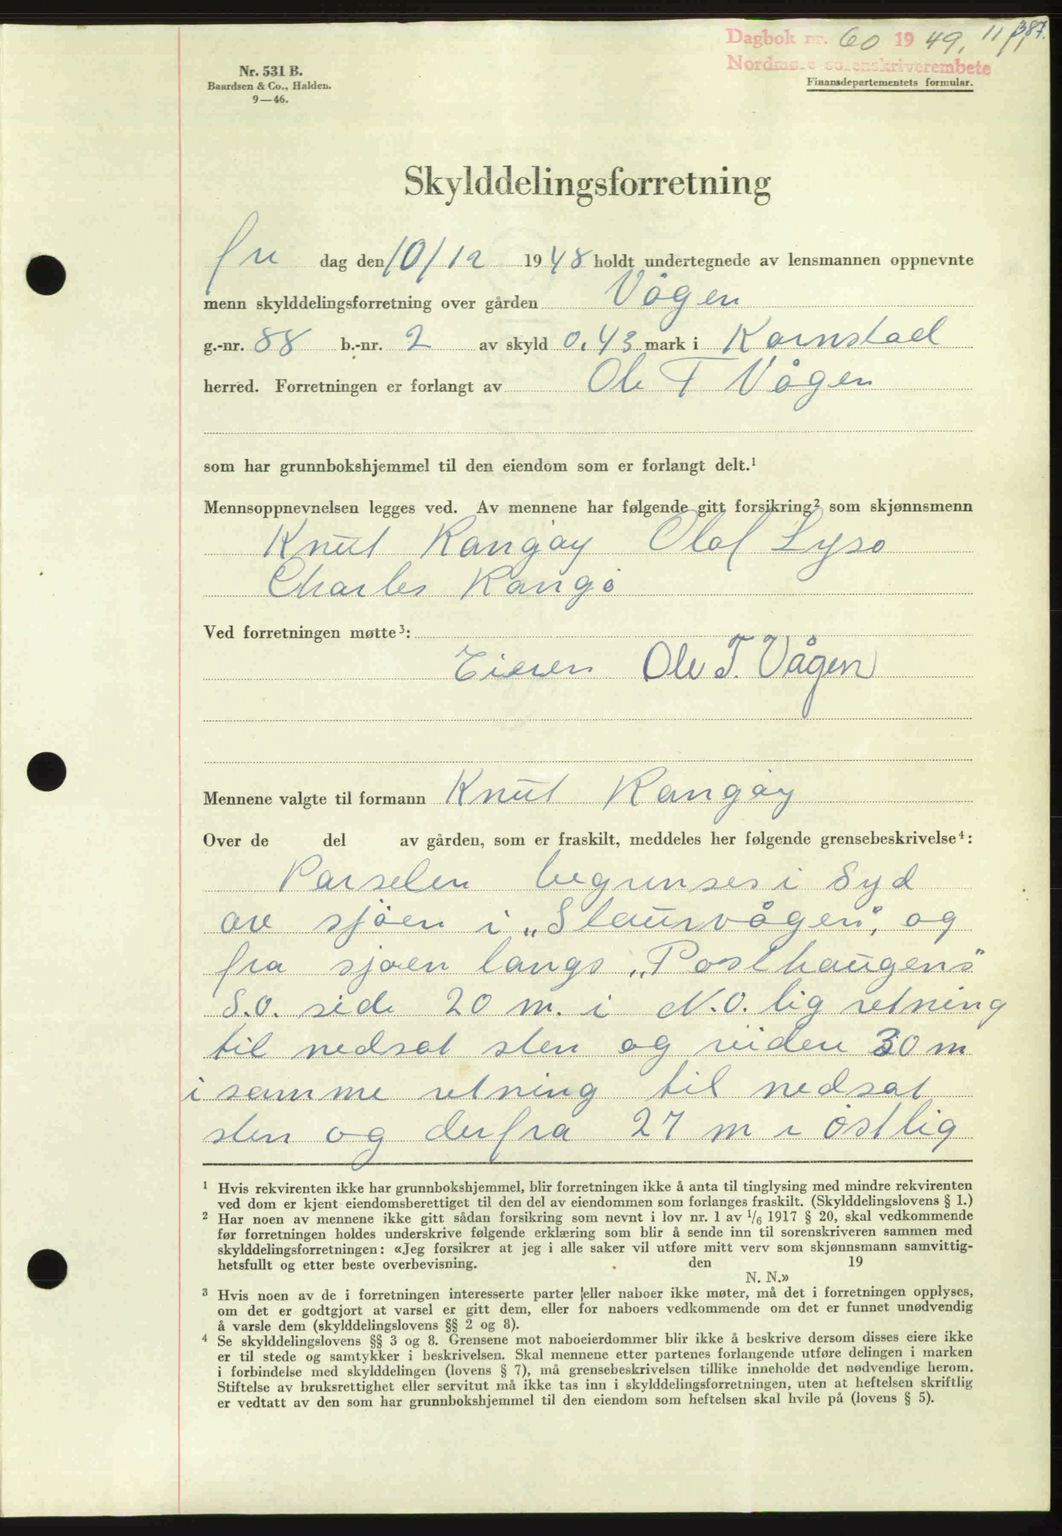 387.
Dagbok nr. 60 1949, 11/1
Nordmøre sorenskriverembete
Nr. 531 B.
Baardsen & Co., Halden.
9—46.
Finansdepartementets formular.
Skylddelingsforretning
fre dag den 10/12 1948 holdt undertegnede av lensmannen oppnevnte
menn skylddelingsforretning over gården Vågen
g.-nr. 88 b.-nr. 2 av skyld 0,43 mark i Kornstad
herred. Forretningen er forlangt av Ole T Vågen
som har grunnbokshjemmel til den eiendom som er forlangt delt.¹
Mennsoppnevnelsen legges ved. Av mennene har følgende gitt forsikring² som skjønnsmenn
Knut Rangøy Olaf Lysø
Charles Rangø
Ved forretningen møtte³:
Eieren Ole T. Vågen
Mennene valgte til formann Knut Rangøy
Over de del av gården, som er fraskilt, meddeles her følgende grensebeskrivelse⁴:
Parselen begrenses i Syd
av sjöen i „Staurvågen", og
fra sjøen langs „Posthaugens"
S.O. side 20 m. i N.O. lig retning
til nedsat sten og viidere 30 m
i samme retning til nedsat
sten og derfra 27 m i östlig
¹ Hvis rekvirenten ikke har grunnbokshjemmel, blir forretningen ikke å anta til tinglysing med mindre rekvirenten
ved dom er kjent eiendomsberettiget til den del av eiendommen som forlanges fraskilt. (Skylddelingslovens § 1.)
² Har noen av mennene ikke gitt sådan forsikring som nevnt i lov nr. 1 av 1/6 1917 § 20, skal vedkommende
før forretningen holdes underskrive følgende erklæring som blir å sende inn til sorenskriveren sammen med
skylddelingsforretningen: «Jeg forsikrer at jeg i alle saker vil utføre mitt verv som skjønnsmann samvittig-
hetsfullt og etter beste overbevisning. den 19
N. N.»
³ Hvis noen av de i forretningen interesserte parter eller naboer ikke møter, må det i forretningen opplyses,
om det er godtgjort at varsel er gitt dem, eller for naboers vedkommende om det er funnet unødvendig
å varsle dem (skylddelingslovens §§ 2 og 8).
⁴ Se skylddelingslovens §§ 3 og 8. Grensene mot naboeierdommer blir ikke å beskrive dersom disses eiere ikke
er til stede og samtykker i beskrivelsen. Skal mennene etter partenes forlangende utføre delingen i marken
i forbindelse med skylddelingen (lovens § 7), må grensebeskrivelsen tillike inneholde det nødvendige herom.
Stiftelse av bruksrettighet eller servitut må ikke tas inn i skylddelingsforretningen, uten at heftelsen skriftlig
er vedtatt av den som har grunnbokshjemmel til den eiendom som heftelsen skal hvile på (lovens § 5).